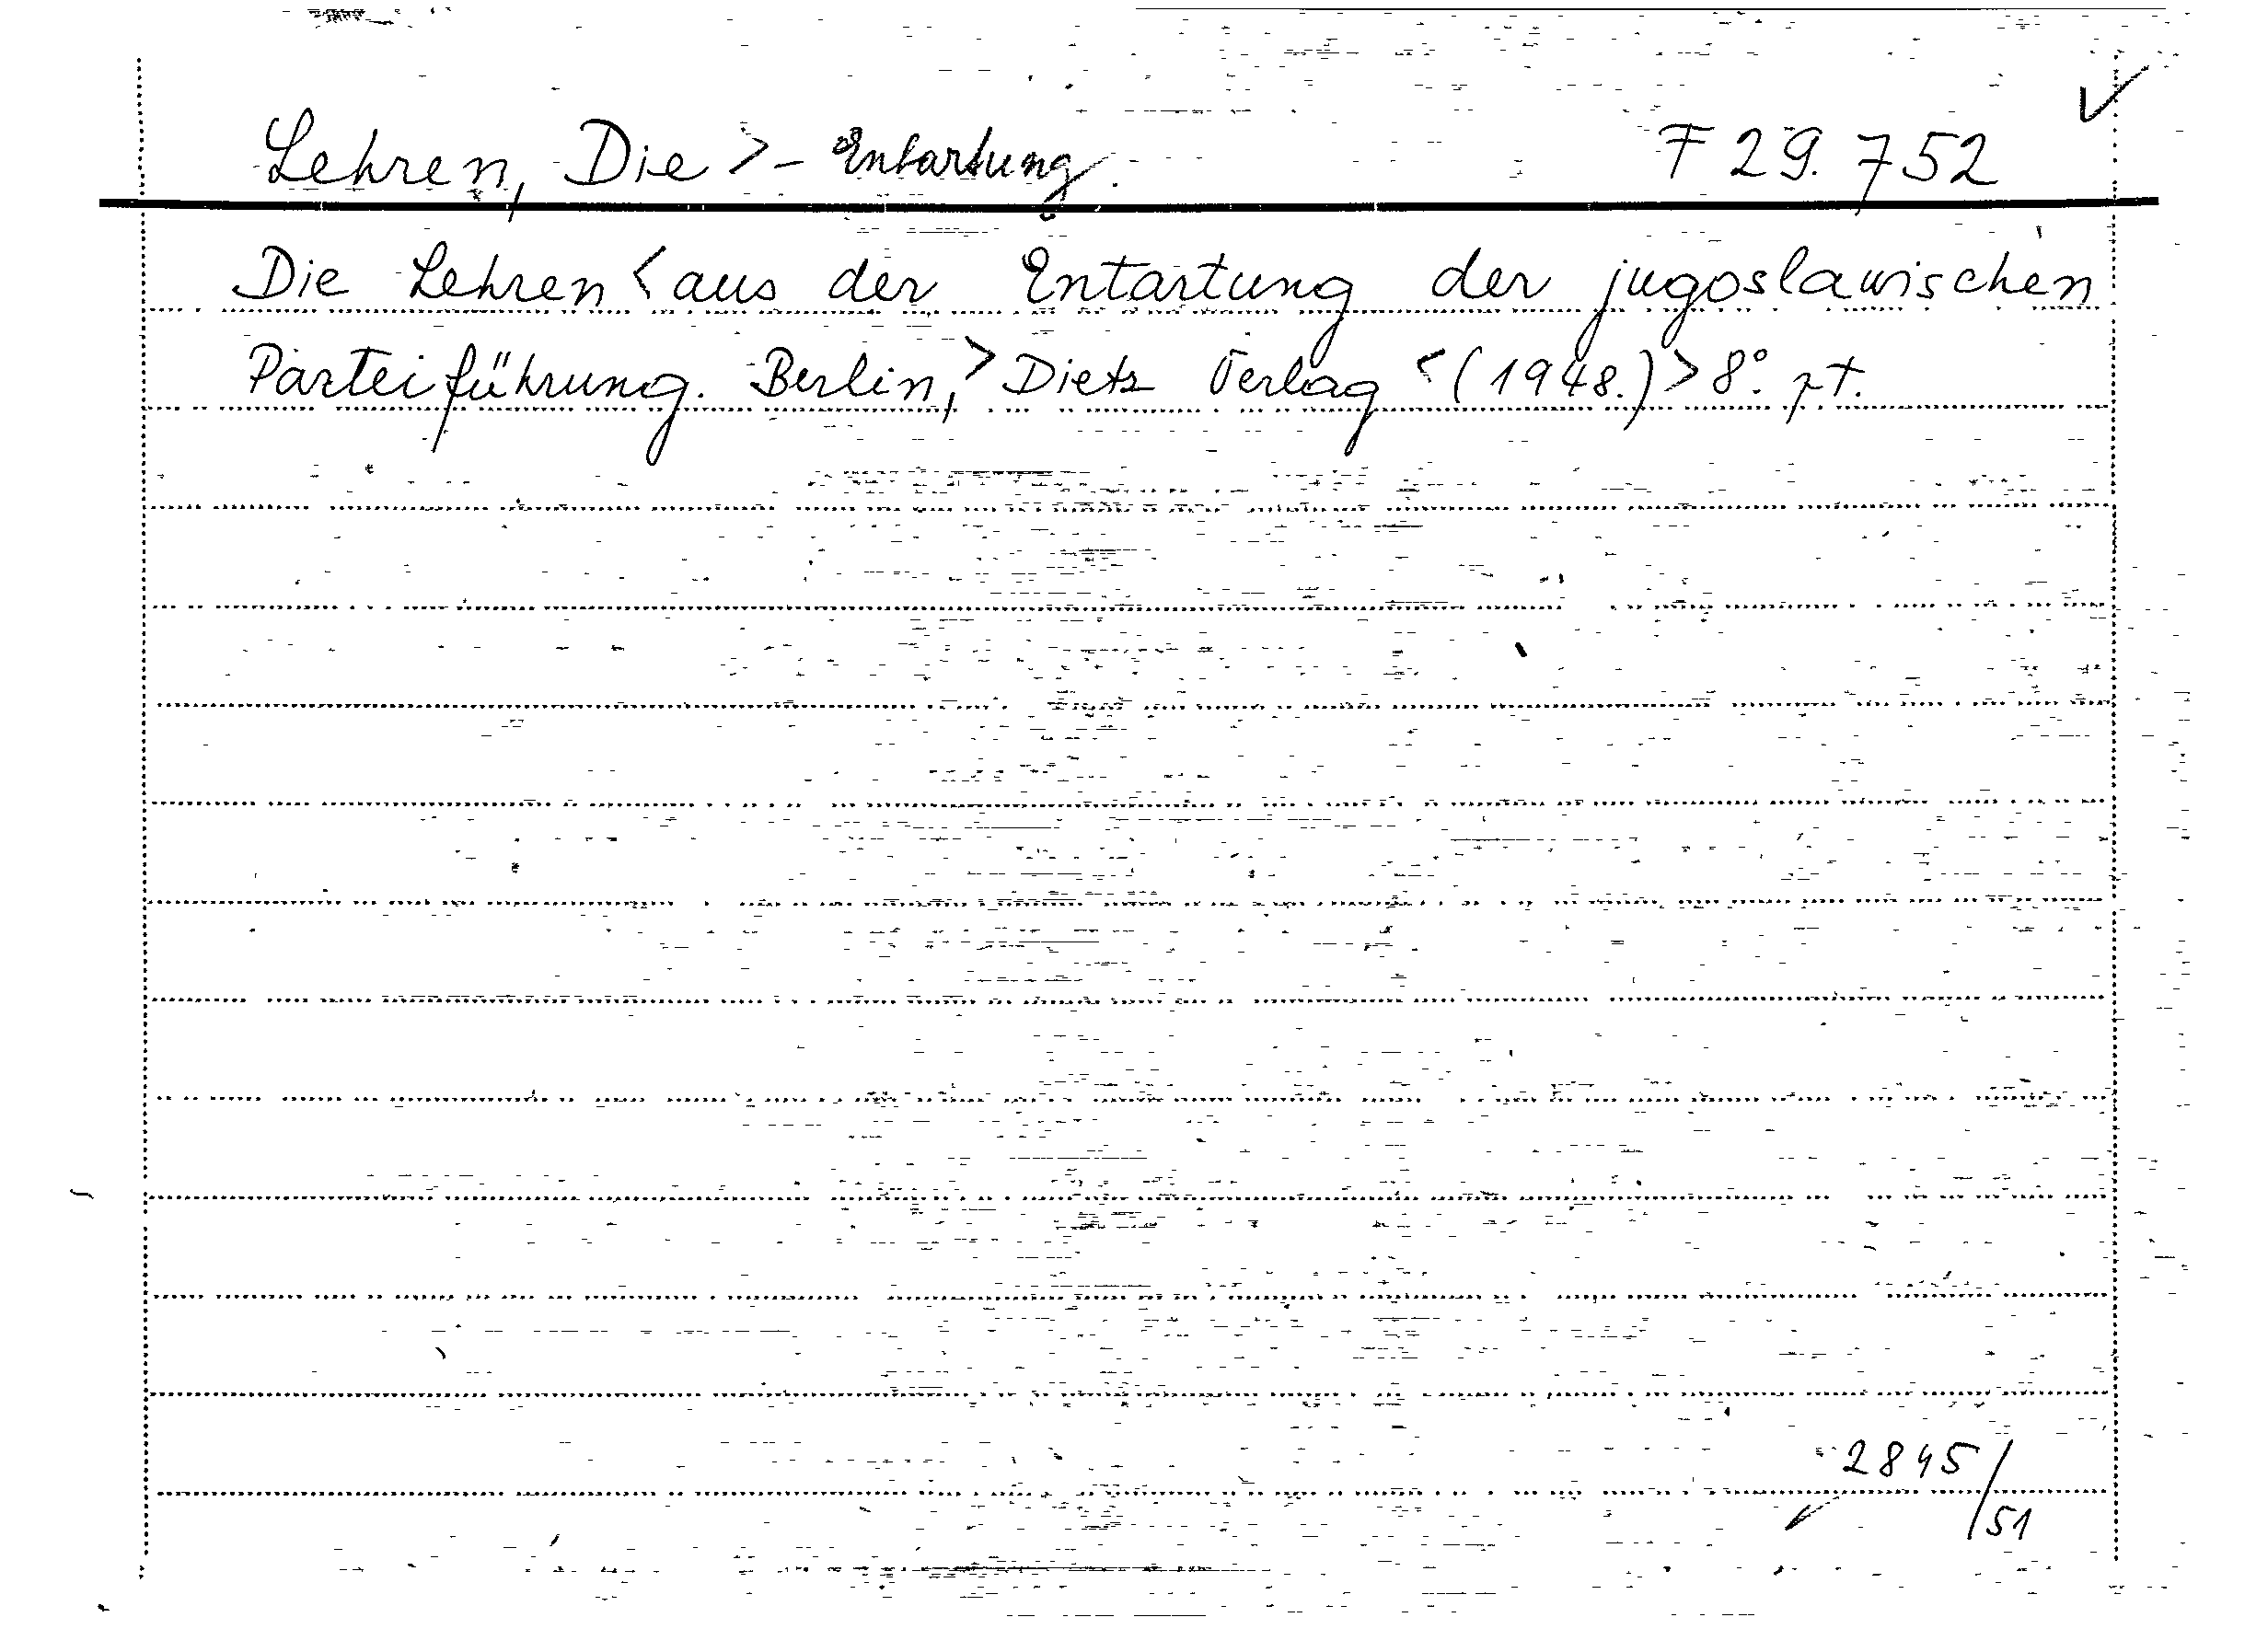 Lehren, Die > - Entartung. F 29.752
Die Lehren < aus der Entartung der jugoslawischen
Parteiführung. Berlin, > Dietz Verlag < (1948.) > 8°. rt.
2845/51